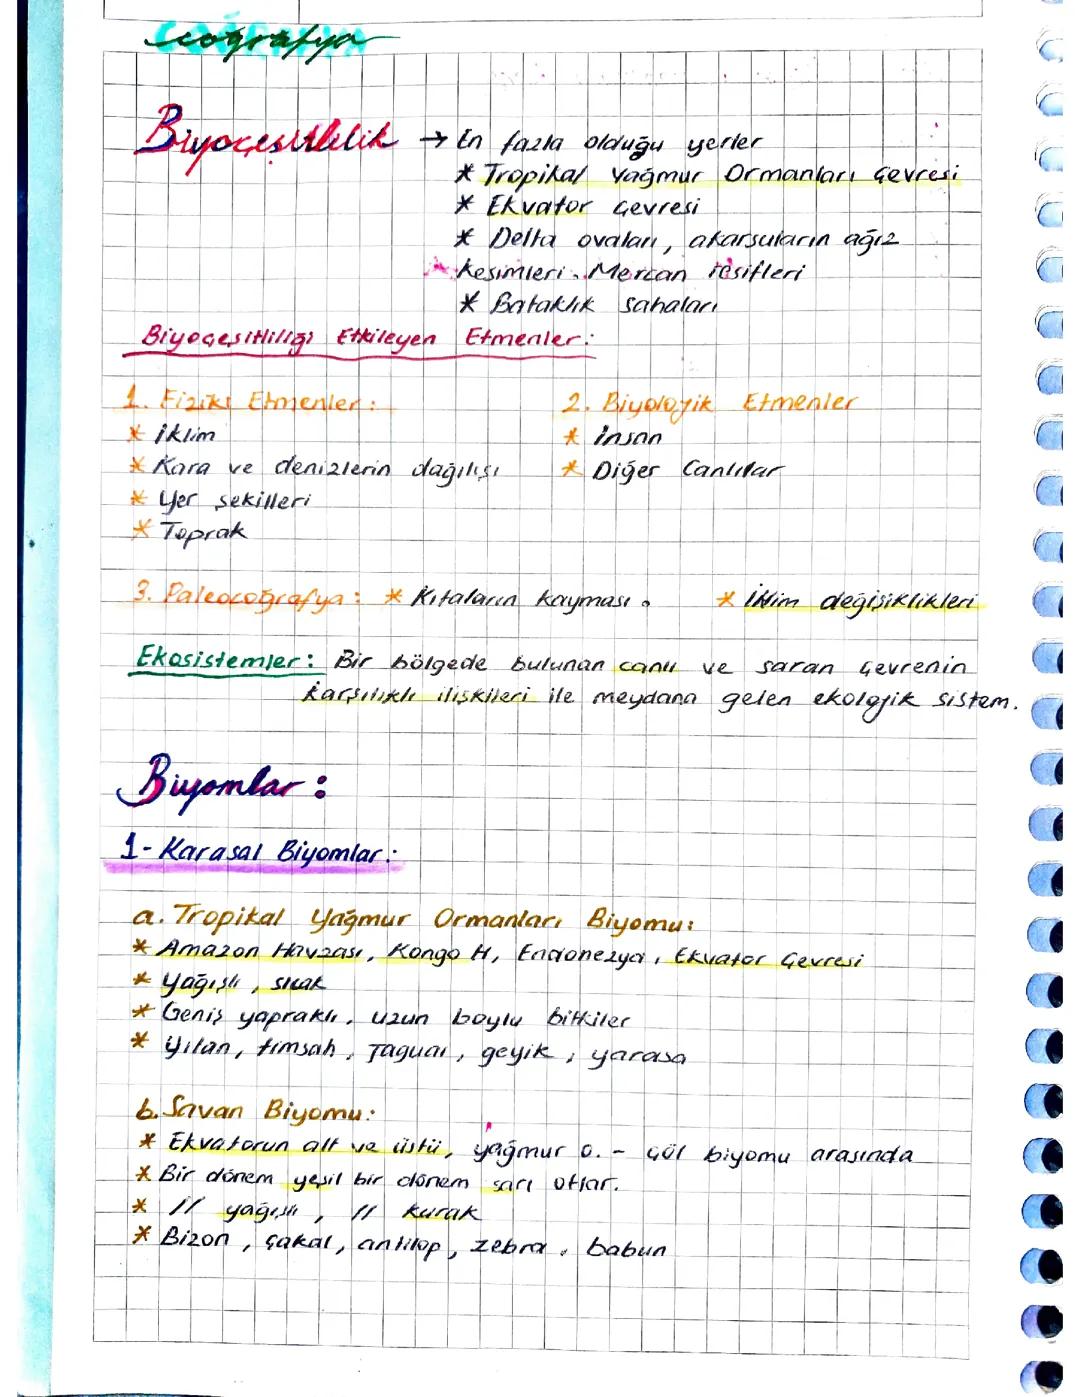 Coğrafya
Biyoçeşitlilik → En fazla olduğu yerler
* Tropikal Yağmur Ormanları Çevresi
* Ekvator Çevresi
* Delta ovaları, akarsuların ağız
kesimleri. Mercan resifleri
* Bataklık Sahaları
Biyoçeşitliliği Etkileyen Etmenler:
1. Fiziki Etmenler:
* İklim
* Kara ve denizlerin dağılışı
* Yer şekilleri
* Toprak
2. Biyolojik Etmenler
* İnsan
* Diğer Canlılar
3. Paleocoğrafya: * Kıtaların kayması. * İklim değişiklikleri
Ekosistemler: Bir bölgede bulunan canlı ve saran çevrenin
karşılıklı ilişkileri ile meydana gelen ekolojik sistem.
Biyomlar:
1- Karasal Biyomlar:
a. Tropikal Yağmur Ormanları Biyomu:
* Amazon Havzası, Kongo H, Endonezya, Ekvator Çevresi
* Yağışlı, sıcak
* Geniş yapraklı, uzun boylu bitkiler
* Yılan, timsah, Jaguar, geyik, yarasa
b. Savan Biyomu:
* Ekvatorun alt ve üstü, yağmur o. - Çöl biyomu arasında
* Bir dönem yeşil bir dönem sarı otlar.
* // yağışlı, // kurak
* Bizon, çakal, antilop, zebra, babun